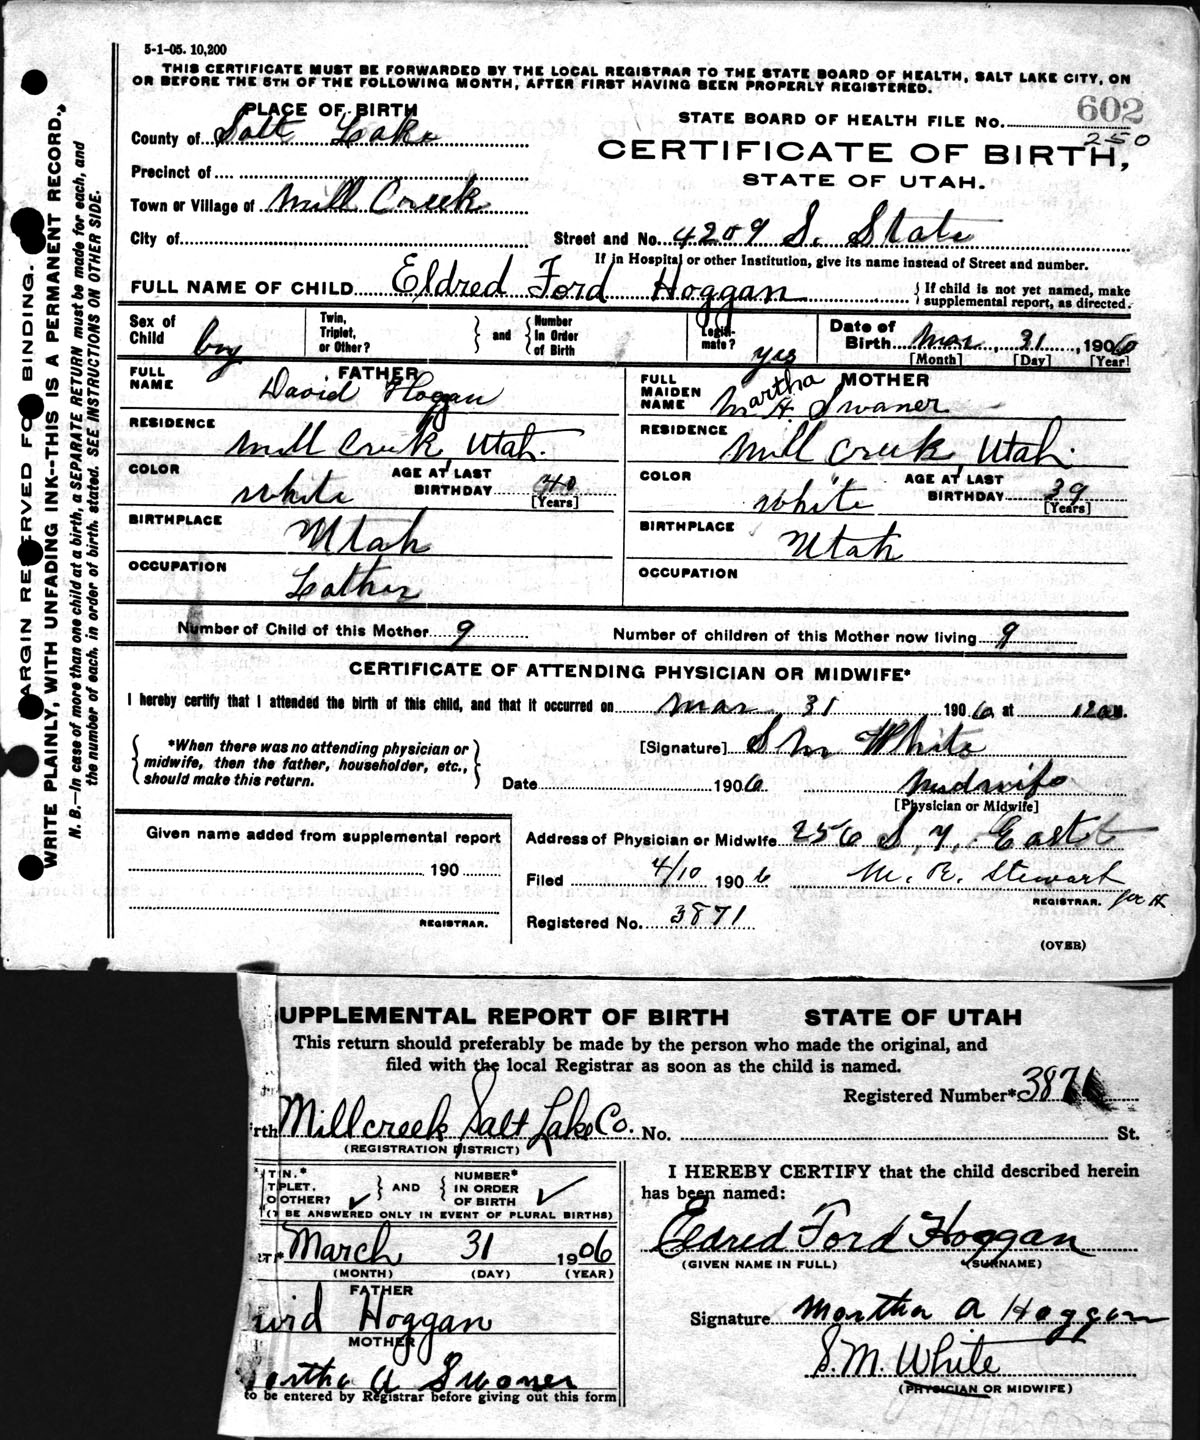 5-1-05. 10,200
THIS CERTIFICATE MUST BE FORWARDED BY THE LOCAL REGISTRAR TO THE STATE BOARD OF HEALTH, SALT LAKE CITY, ON
OR BEFORE THE 5TH OF THE FOLLOWING MONTH, AFTER FIRST HAVING BEEN PROPERLY REGISTERED.
PLACE OF BIRTH
STATE BOARD OF HEALTH FILE No. 602
250
County of Salt Lake
CERTIFICATE OF BIRTH,
STATE OF UTAH.
Precinct of
Town or Village of Mill Creek
City of
Street and No. 4209 S. State
If in Hospital or other Institution, give its name instead of Street and number.
FULL NAME OF CHILD Eldred Ford Hoggan
If child is not yet named, make
supplemental report, as directed.
Sex of Child boy
Twin, Triplet, or Other?
and
Number In Order of Birth
Legit-mate? yes
Date of Birth Mar 31, 1906
[Month] [Day] [Year]
FATHER
FULL NAME David Hoggan
RESIDENCE Mill Creek, Utah.
COLOR White
AGE AT LAST BIRTHDAY 40
[Years]
BIRTHPLACE Utah
OCCUPATION Lather
MOTHER
FULL MAIDEN NAME Martha A. Swaner
RESIDENCE Mill Creek, Utah.
COLOR White
AGE AT LAST BIRTHDAY 39
[Years]
BIRTHPLACE Utah
OCCUPATION
Number of Child of this Mother 9
Number of children of this Mother now living 9
CERTIFICATE OF ATTENDING PHYSICIAN OR MIDWIFE*
I hereby certify that I attended the birth of this child, and that it occurred on Mar 31 1906 at 12 M.
*When there was no attending physician or
midwife, then the father, householder, etc.,
should make this return.
[Signature] S M White
Date 1906 Midwife
[Physician or Midwife]
Given name added from supplemental report
190
REGISTRAR.
Address of Physician or Midwife 256 S. 7. East
Filed 4/10 1906 M. R. Stewart
REGISTRAR.
Registered No. 3871
(OVER)
MARGIN RESERVED FOR BINDING.
WRITE PLAINLY, WITH UNFADING INK--THIS IS A PERMANENT RECORD.
N. B.—In case of more than one child at a birth, a SEPARATE RETURN must be made for each, and
the number of each, in order of birth, stated. SEE INSTRUCTIONS ON OTHER SIDE.
UPPLEMENTAL REPORT OF BIRTH STATE OF UTAH
This return should preferably be made by the person who made the original, and
filed with the local Registrar as soon as the child is named.
Registered Number* 3871
rth Millcreek Salt Lake Co. No. St.
(REGISTRATION DISTRICT)
I HEREBY CERTIFY that the child described herein
has been named:
IN,*
PLET,
OTHER? ✓
AND
NUMBER*
IN ORDER
OF BIRTH ✓
BE ANSWERED ONLY IN EVENT OF PLURAL BIRTHS)
March 31 1906
(MONTH) (DAY) (YEAR)
Eldred Ford Hoggan
(GIVEN NAME IN FULL) (SURNAME)
FATHER
vid Hoggan
MOTHER
artha A Swaner
to be entered by Registrar before giving out this form
Signature Martha A Hoggan
S. M. White
(PHYSICIAN OR MIDWIFE)